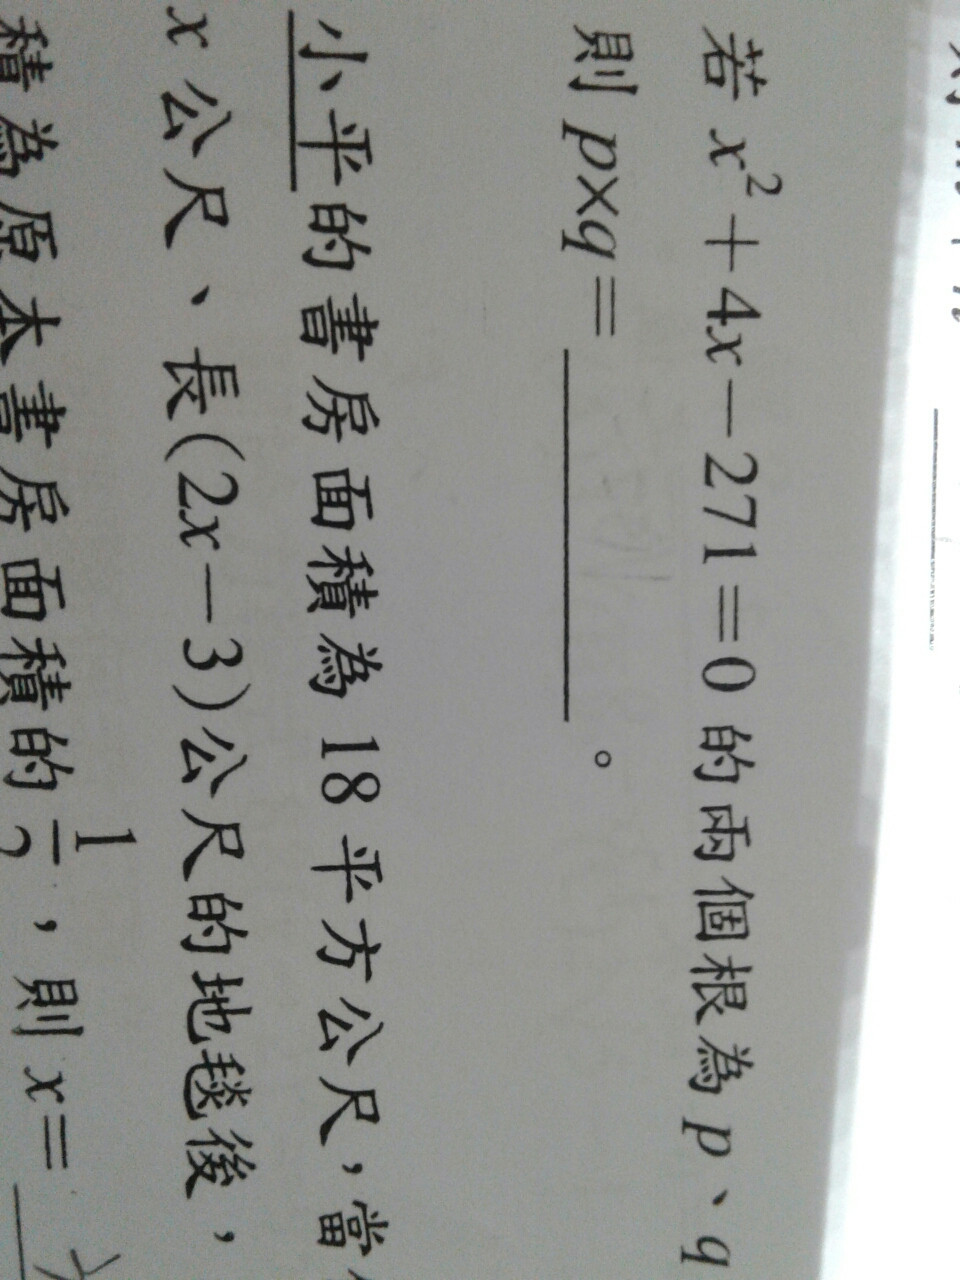 若 x²+4x-271=0 的兩個根為 p、q
則 p×q= ________ 。
小平的書房面積為 18 平方公尺,當
x 公尺、長(2x-3)公尺的地毯後,
積為原本書房面積的 1/2,則 x=